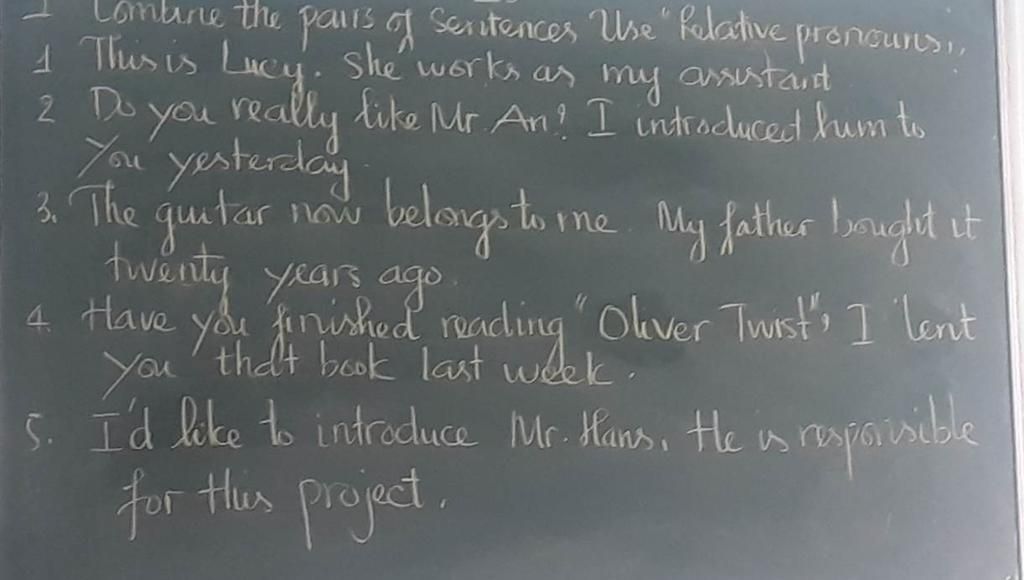 I Combine the pairs of sentences Use "Relative pronouns,,
1 This is Lucy. She works as my assistant
2 Do you really like Mr. An? I introduced him to
You yesterday.
3. The guitar now belongs to me. My father bought it
twenty years ago.
4. Have you finished reading "Oliver Twist", I lent
you that book last week.
5. I'd like to introduce Mr. Hans, He is responsible
for this project.